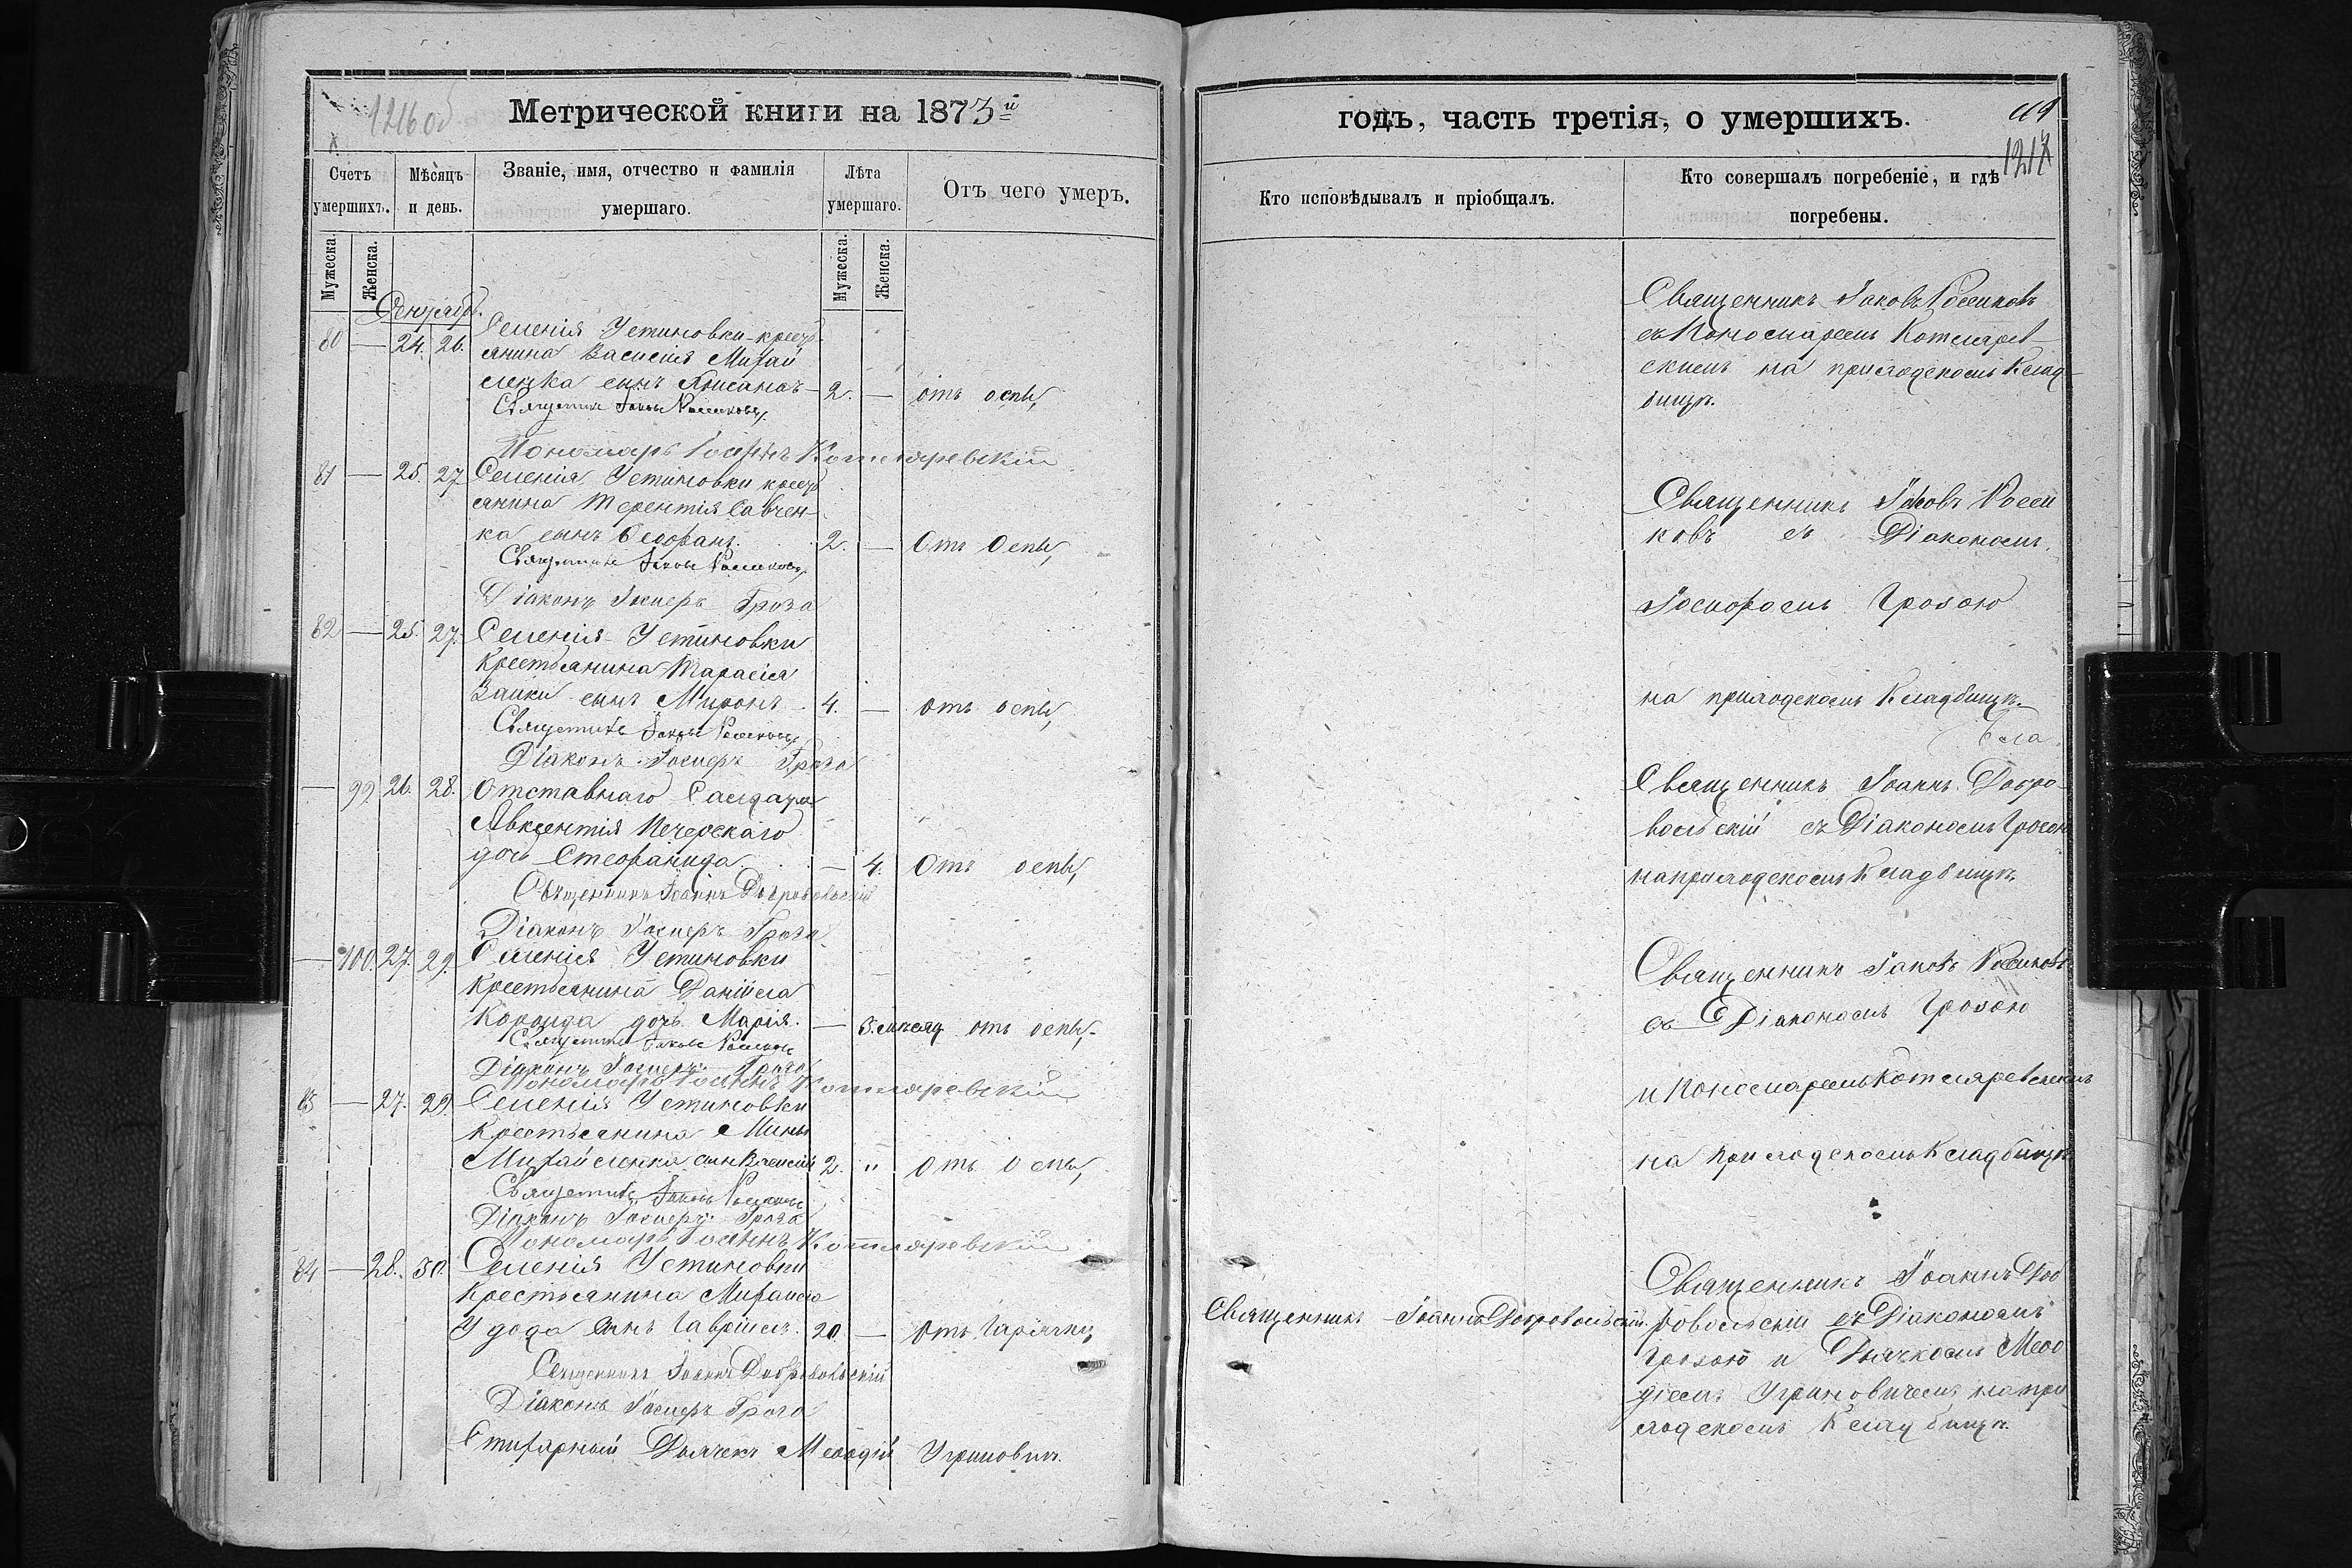 1216 об
Метрической книги на 1873й
Счетъ умершихъ.
Мѣсяцъ и день.
Званіе, имя, отчество и фамилія умершаго.
Лѣта умершаго.
Отъ чего умеръ.
Мужеска.
Женска.
Мужеска.
Женска.
80 — 24. 26. Селенія Устиновки крестъ
янина Василія Михай
ленка сынъ — 2. — отъ оспы,
Священникъ Іаковъ
Пономарь Іоаннъ Котляревскій
81 — 25. 27 Селенія Устиновки крестъ
янина Терентія Савчен
ка сынъ Ѳеофанъ. 2. — Отъ Оспы,
Священникъ Іаковъ
Діаконъ Гроза
82 — 25. 27. Селенія Устиновки
Крестьянина Тарасія
Заики сынъ Миронъ. 4. — отъ оспы,
Священникъ Іаковъ
Діаконъ Гроза
— 99. 26. 28. Отставнаго Салдата
Авксентія Печерскаго
дочь Стефанида. — 4. Отъ оспы,
Священникъ Іоаннъ Добровольскій
Діаконъ Гроза
— 100. 27. 29. Селенія Устиновки
Крестьянина Даніила
дочь Марія. — отъ оспы,
Священникъ Іаковъ
Діаконъ Гроза
Пономарь Іоаннъ Котляревскій
— 27. 29. Селенія Устиновки
Крестьянина Мины
Михайленка сынъ 2. " Отъ Оспы,
Священникъ Іаковъ
Діаконъ Гроза
Пономарь Іоаннъ Котляревскій
84 — 28. 30. Селенія Устиновки
Крестьянина Михаила
Удода сынъ Гавріилъ. 20. — Отъ Гарячки,
Священникъ Іоаннъ Добровольскій
Діаконъ Гроза
Стихарный Дьячекъ Меѳодій Угриновичъ.
годъ, часть третія, о умершихъ.
1217
Кто исповѣдывалъ и пріобщалъ.
Кто совершалъ погребеніе, и гдѣ погребены.
Священникъ Іаковъ
съ Пономаремъ Котлярев
скимъ на приходскомъ Клад
бищѣ.
Священникъ Іаковъ
съ Діакономъ
Грозою
на приходскомъ Кладбищѣ.
Священникъ Іоаннъ Добро
вольскій съ Діакономъ Грозою
на приходскомъ Кладбищѣ.
Священникъ Іаковъ
съ Діакономъ Грозою
и Пономаремъ Котляревскимъ
на приходскомъ Кладбищѣ
Священникъ Іоаннъ Доб
Священникъ Іоаннъ Добровольскій. ровольскій съ Діакономъ
Грозою и Дьячкомъ Меѳо
діемъ Угриновичемъ на при
ходскомъ Кладбищѣ.